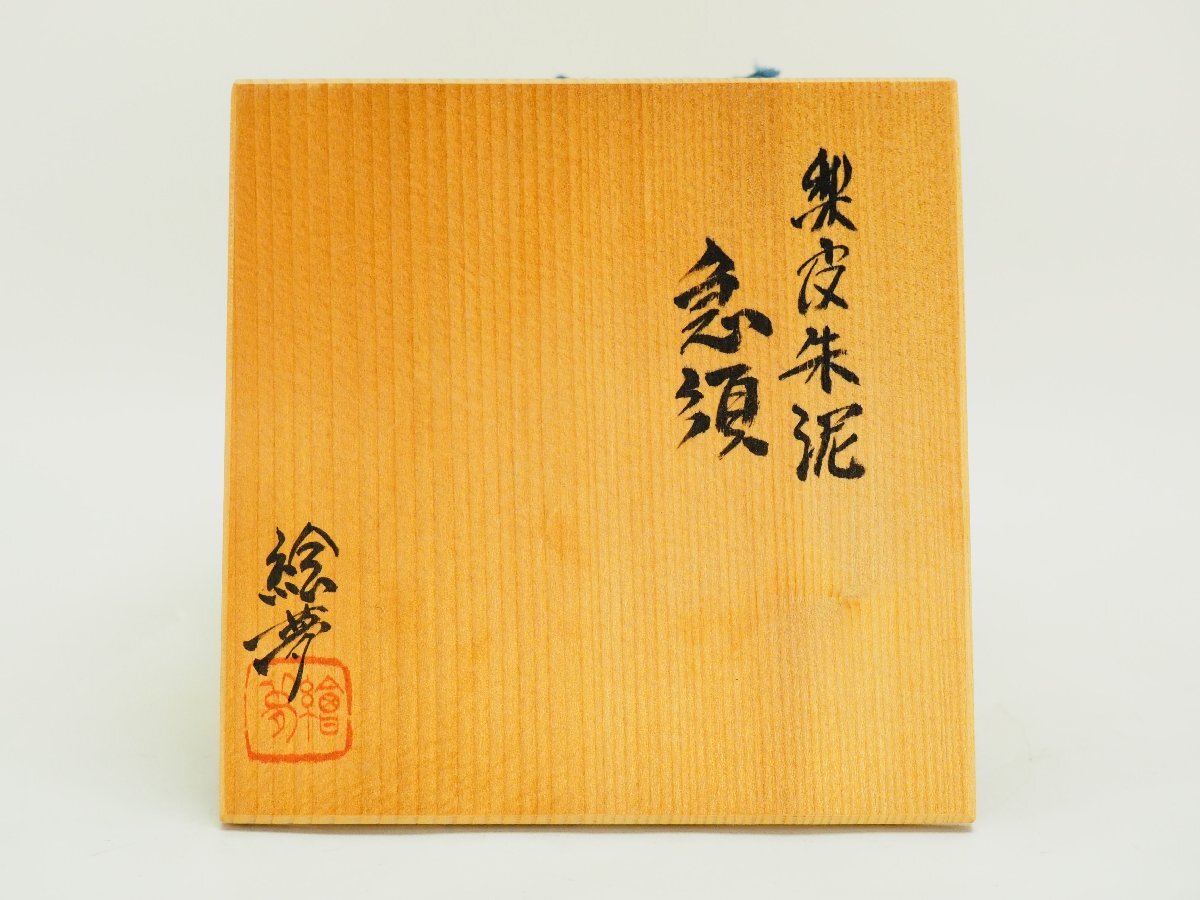 梨皮朱泥
急須
絵夢
繪夢